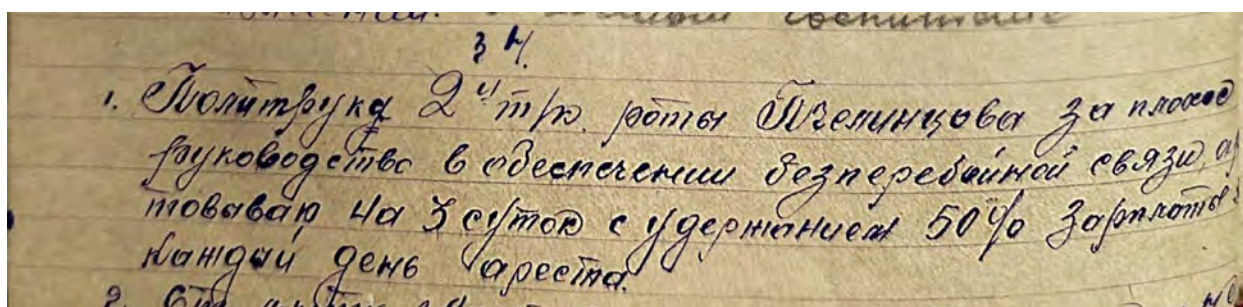 § 4.
1. Политрука 2й тр. роты Пчелинцова за плохое
руководство в обеспечении безперебойной связи, ар
товаваю на 3 суток с удержанием 50% зарплаты
каждый день ареста.
2.